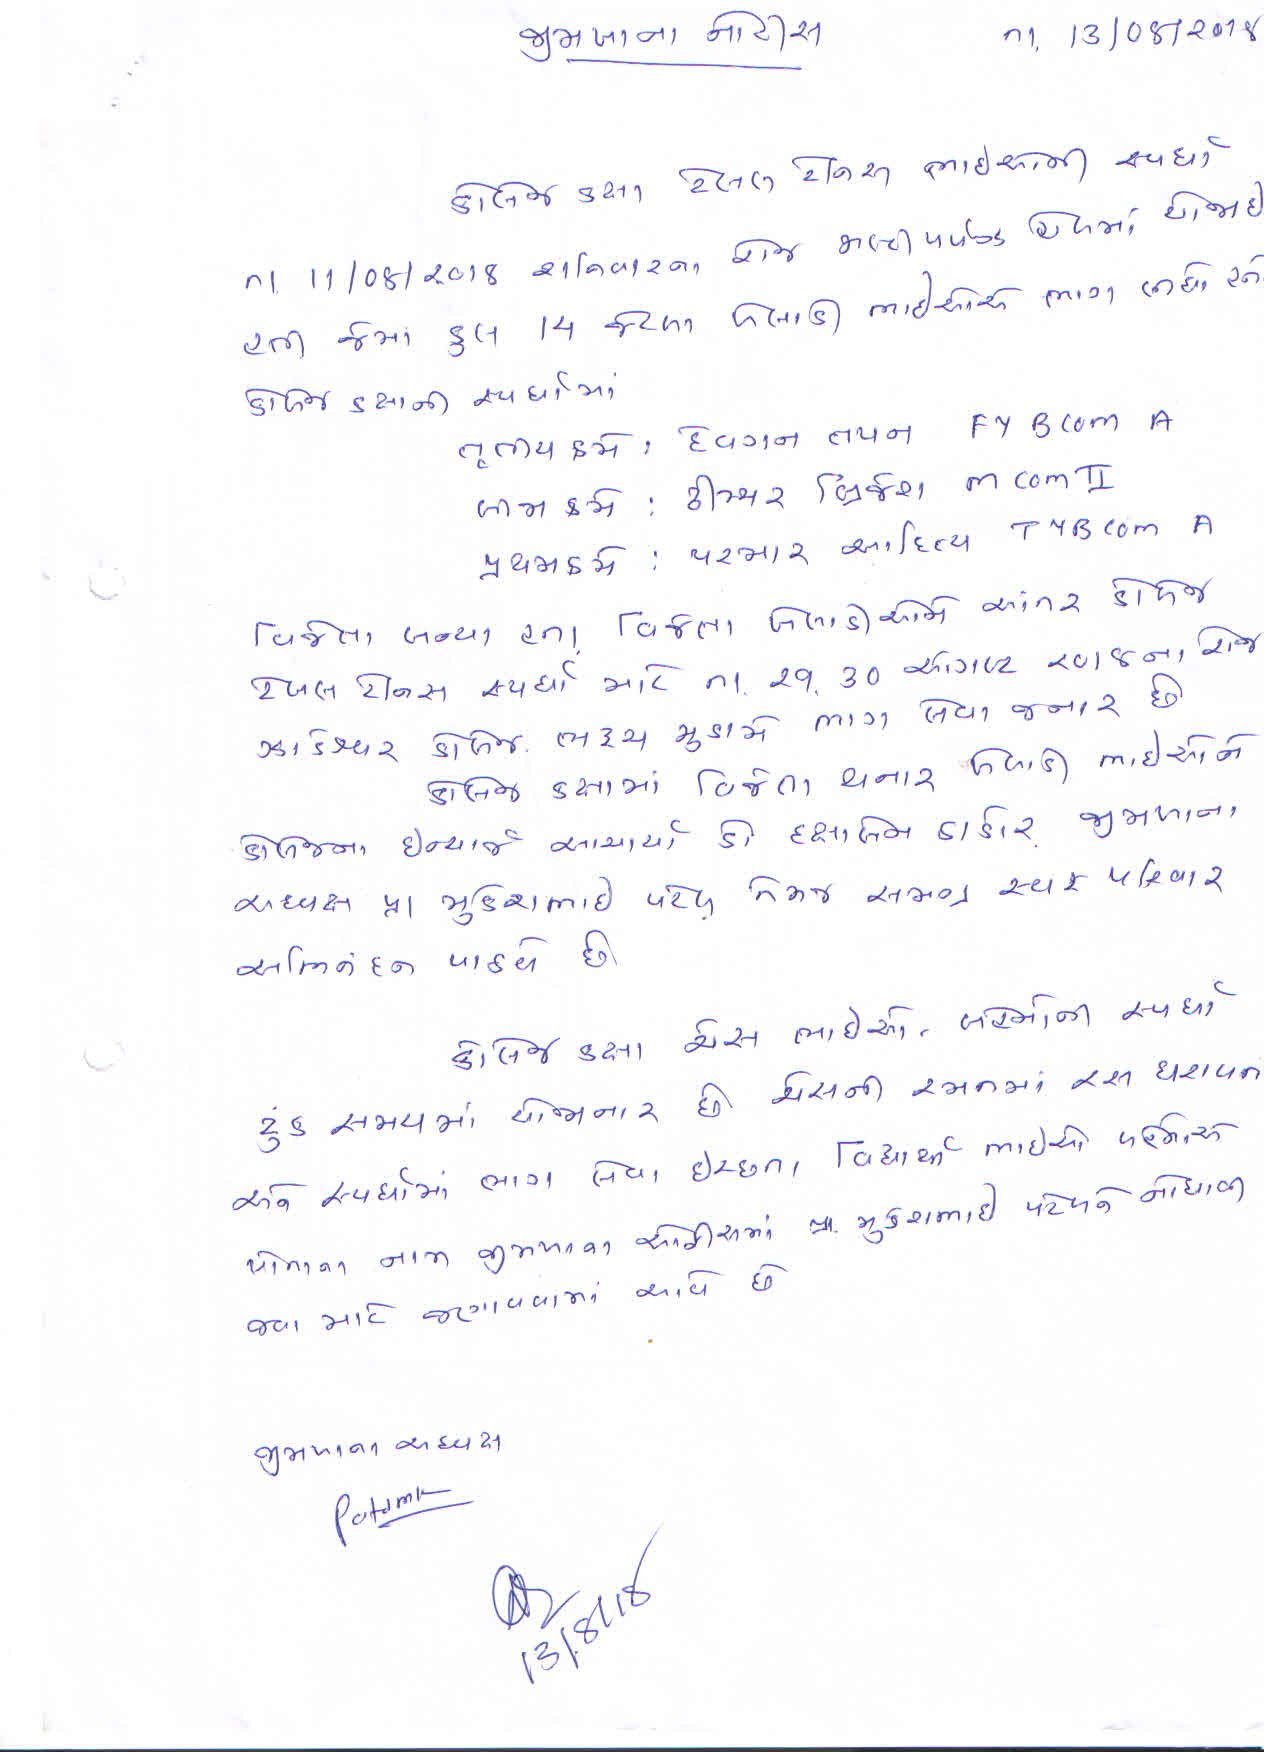 જીમખાના નોટીસ
તા. 13/08/2018
કોલેજ કક્ષા ટેબલ ટેનિસ ભાઇઓની સ્પર્ધા
તા. 11/08/2018 શનિવારના રોજ મલ્ટીપર્પઝ હોલમાં યોજાઇ
હતી જેમાં કુલ 14 જેટલા ખેલાડી ભાઇઓએ ભાગ લીધો હતો
કોલેજ કક્ષાની સ્પર્ધામાં
તૃતીય ક્રમે : દેવગન તપન FY BCom A
બીજા ક્રમે : ઠીમ્મર બ્રિજેશ M Com II
પ્રથમ ક્રમે : પરમાર આદિત્ય TYBCom A
વિજેતા બન્યા હતા. વિજેતા ખેલાડીઓ આંતર કોલેજ
ટેબલ ટેનિસ સ્પર્ધા માટે તા. 29, 30 ઓગષ્ટ ૨૦૧૮ના રોજ
ઝાડેશ્વર કોલેજ. ભરૂચ મુકામે ભાગ લેવા જનાર છે
કોલેજ કક્ષામાં વિજેતા થનાર ખેલાડી ભાઇઓને
કોલેજના ઇન્ચાર્જ આચાર્યા ડો દક્ષાબેન ઠાકોર, જીમખાના
અધ્યક્ષ પ્રા મુકેશભાઇ પટેલ તેમજ સમગ્ર સ્ટાફ પરિવાર
અભિનંદન પાઠવે છે
કોલેજ કક્ષા ચેસ ભાઇઓ, બહેનોની સ્પર્ધા
ટુંક સમયમાં યોજાનાર છે ચેસની રમતમાં રસ ધરાવતા
અને સ્પર્ધામાં ભાગ લેવા ઇચ્છતા વિદ્યાર્થી ભાઇઓ બહેનોએ
પોતાના નામ જીમખાના ઓફીસમાં પ્રા. મુકેશભાઇ પટેલને નોંધાવી
જવા માટે જણાવવામાં આવે છે
જીમખાના અધ્યક્ષ
13/8/18